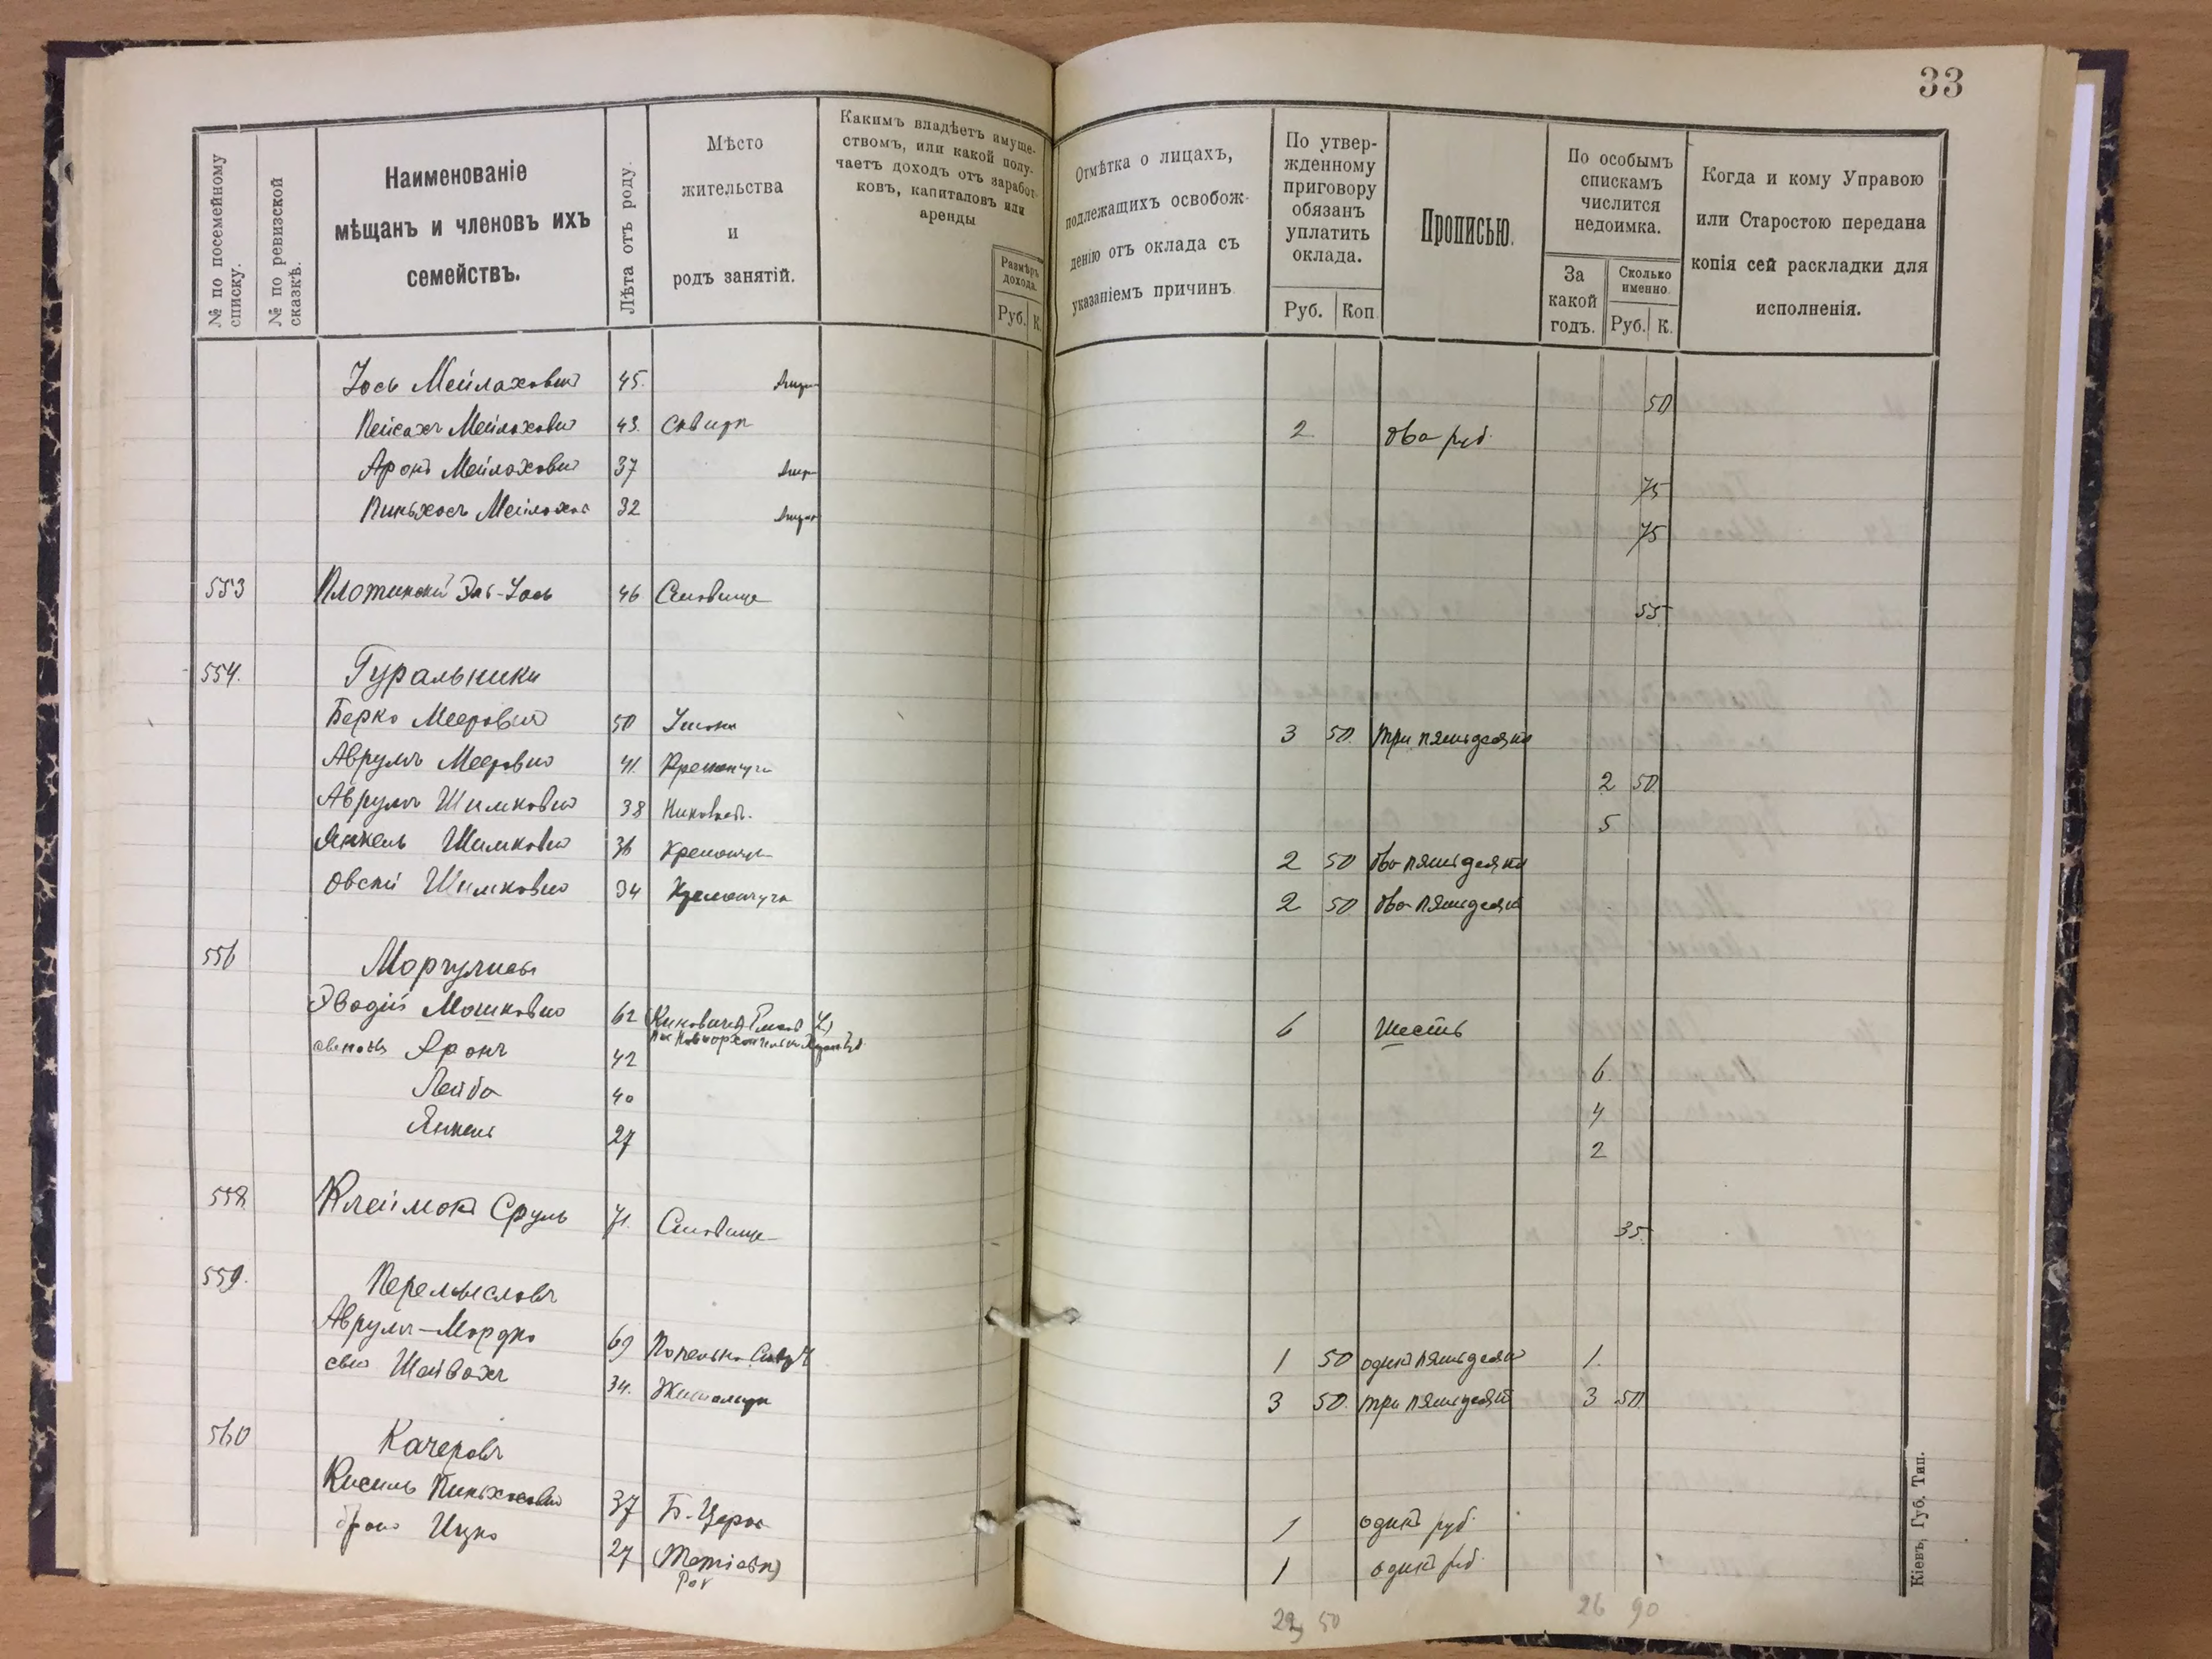 33
№ по посемейному списку.
№ по ревизской сказкѣ.
Наименованіе
мѣщанъ и членовъ ихъ
семействъ.
Лѣта отъ роду.
Мѣсто
жительства
и
родъ занятій.
Какимъ владѣетъ имуще-
ствомъ, или какой полу-
чаетъ доходъ отъ заработ-
ковъ, капиталовъ или
аренды
Размѣръ
дохода.
Руб. К.
Отмѣтка о лицахъ,
подлежащихъ освобож-
денію отъ оклада съ
указаніемъ причинъ
По утвер-
жденному
приговору
обязанъ
уплатить
оклада.
Руб. Коп
Прописью.
По особымъ
спискамъ
числится
недоимка.
За
какой
годъ.
Сколько
именно.
Руб. К.
Когда и кому Управою
или Старостою передана
копія сей раскладки для
исполненія.
Іось Мейлаховичъ 45. 50
Пейсахъ Мейлаховичъ 43. Сквира 2 два руб.
Аронъ Мейлаховичъ 37 75
Пиньхосъ Мейлахов 32 75
553 Плотинскій Эль-Іось 46 55.
554. Гуральники
Берко Мееровичъ 50 Умань 3 50. три пятьдесятъ
Аврумъ Мееровичъ 41. Кременчугъ 2 50
Аврумъ Шимковичъ 38 Николаев. 5
Янкель Шимковичъ 36 Кременчуг 2 50 два пятьдесятъ
Овсей Шимковичъ 34 Кременчугъ 2 50 два пятьдесят
556 Моргулисы
Эвадій Мошковичъ 62 6 Шесть
сыновья Аронъ 42 6.
Лейба 40 4
Янкель 27 2
558 Клеймокъ Сруль 71. 35.
559. Перемысловъ
Аврумъ-Мордко 69 1 50 одинъ пятьдесят 1.
сынъ Шайвахъ 34. Житомиръ 3 50. три пятьдесят 3 50
560 Качеровъ
Кисиль Пиньхосовичъ 37 Б.-Церков 1 одинъ руб.
братъ Ицко 27 (Тетіевъ) 1 один руб.
22 50
26 90
Кіевъ, Губ. Тип.